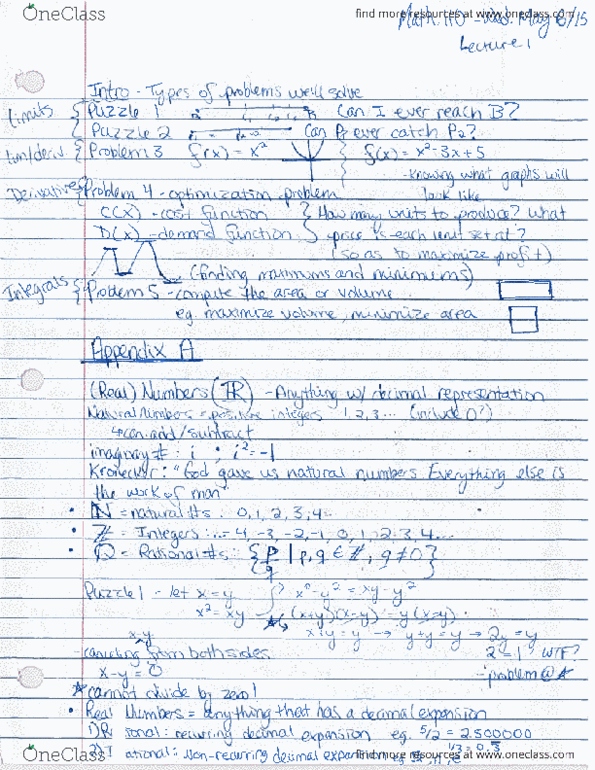 OneClass
find more resources at www.oneclass.com
Math 110 - Wed. May 6/15
Lecture 1
Intro - Types of problems we'll solve
Limits { Puzzle 1 Can I ever reach B?
Puzzle 2 Can P1 ever catch P2?
lim/deriv. { Problem 3 f(x) = x² f(x) = x² - 3x + 5
- knowing what graphs will look like
Derivatives { Problem 4 - optimization problem
C(x) - cost function } How many units to produce? What
D(x) - demand function } price is each unit set at?
(so as to maximize profit)
(finding maximums and minimums)
Integrals { Problem 5 - compute the area or volume
eg. maximize volume, minimize area
Appendix A
(Real) Numbers (ℝ) - Anything w/ decimal representation
Natural numbers = positive integers 1, 2, 3... (include 0?)
↳ can add/subtract
imaginary #: i ; i² = -1
Kronecker: "God gave us natural numbers. Everything else is
the work of man"
• ℕ = natural #s: 0, 1, 2, 3, 4...
• ℤ = Integers: ...-4, -3, -2, -1, 0, 1, 2, 3, 4...
• ℚ = Rational #s: { p/q | p, q ∈ ℤ, q ≠ 0 }
Puzzle 1 - let x = y x² - y² = xy - y²
x² = xy (x+y)(x-y) = y(x-y)
x-y x+y = y → y+y = y → 2y = y
canceling from both sides 2 = 1 WTF?
x - y = 0 - problem @ *
* cannot divide by zero!
• Real Numbers = anything that has a decimal expansion
ional: recurring decimal expansion eg. 5/2 = 2.500000
1/3 = 0.3
ational: Non-recurring decimal expansion
OneClass
find more resources at www.oneclass.com